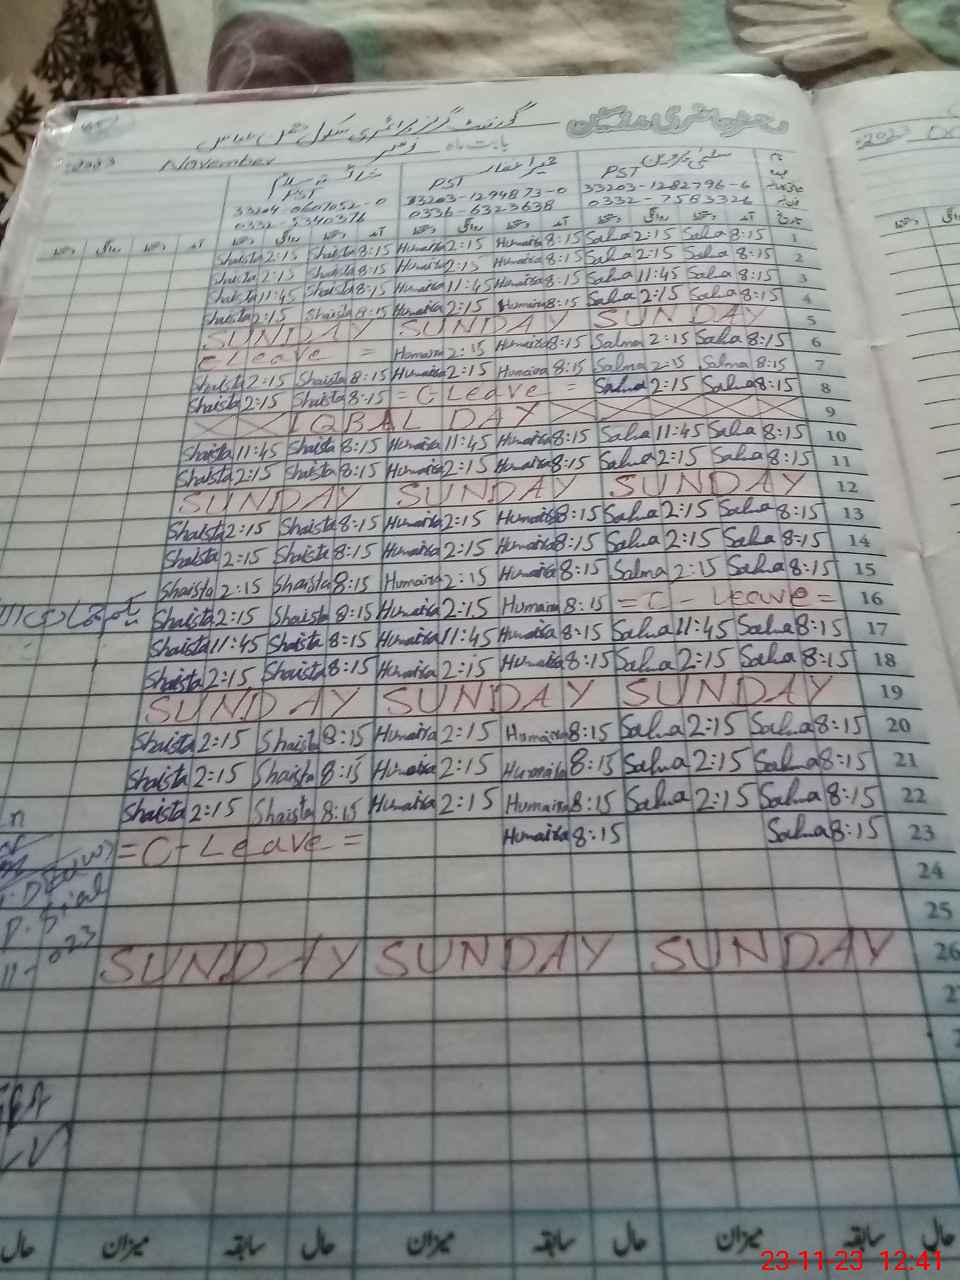 دفتر حاضری مدرسین گورنمنٹ گرلز پرائمری سکول
بابت ماہ نومبر November 2023
نام سلمیٰ حمیرا
عہدہ PST PST PST
33203-1282796-6 33203-1294873-0 33204-0607052-0
0332-7583326 0336-6323638 0332-5340376
تاریخ آمد دستخط روانگی دستخط آمد دستخط روانگی دستخط آمد دستخط روانگی دستخط آمد دستخط روانگی دستخط
Shaista 2:15 Shaista 8:15 Humaira 2:15 Humaira 8:15 Salma 2:15 Salma 8:15 1
Shaista 2:15 Shaista 8:15 Humaira 2:15 Humaira 8:15 Salma 2:15 Salma 8:15 2
Shaista 11:45 Shaista 8:15 Humaira 11:45 Humaira 8:15 Salma 11:45 Salma 8:15 3
Shaista 2:15 Shaista 8:15 Humaira 2:15 Humaira 8:15 Salma 2:15 Salma 8:15 4
SUNDAY SUNDAY SUNDAY 5
C Leave = Humaira 2:15 Humaira 8:15 Salma 2:15 Salma 8:15 6
Shaista 2:15 Shaista 8:15 Humaira 2:15 Humaira 8:15 Salma 2:15 Salma 8:15 7
Shaista 2:15 Shaista 8:15 = C-Leave = Salma 2:15 Salma 8:15 8
IQBAL DAY 9
Shaista 11:45 Shaista 8:15 Humaira 11:45 Humaira 8:15 Salma 11:45 Salma 8:15 10
Shaista 2:15 Shaista 8:15 Humaira 2:15 Humaira 8:15 Salma 2:15 Salma 8:15 11
SUNDAY SUNDAY SUNDAY 12
Shaista 2:15 Shaista 8:15 Humaira 2:15 Humaira 8:15 Salma 2:15 Salma 8:15 13
Shaista 2:15 Shaista 8:15 Humaira 2:15 Humaira 8:15 Salma 2:15 Salma 8:15 14
Shaista 2:15 Shaista 8:15 Humaira 2:15 Humaira 8:15 Salma 2:15 Salma 8:15 15
Shaista 2:15 Shaista 8:15 Humaira 2:15 Humaira 8:15 = C - Leave = 16
Shaista 11:45 Shaista 8:15 Humaira 11:45 Humaira 8:15 Salma 11:45 Salma 8:15 17
Shaista 2:15 Shaista 8:15 Humaira 2:15 Humaira 8:15 Salma 2:15 Salma 8:15 18
SUNDAY SUNDAY SUNDAY 19
Shaista 2:15 Shaista 8:15 Humaira 2:15 Humaira 8:15 Salma 2:15 Salma 8:15 20
Shaista 2:15 Shaista 8:15 Humaira 2:15 Humaira 8:15 Salma 2:15 Salma 8:15 21
Shaista 2:15 Shaista 8:15 Humaira 2:15 Humaira 8:15 Salma 2:15 Salma 8:15 22
= C-Leave = Humaira 8:15 Salma 8:15 23
24
25
SUNDAY SUNDAY SUNDAY 26
حال سابقہ میزان حال سابقہ میزان حال سابقہ میزان حال
23-11-23 12:41